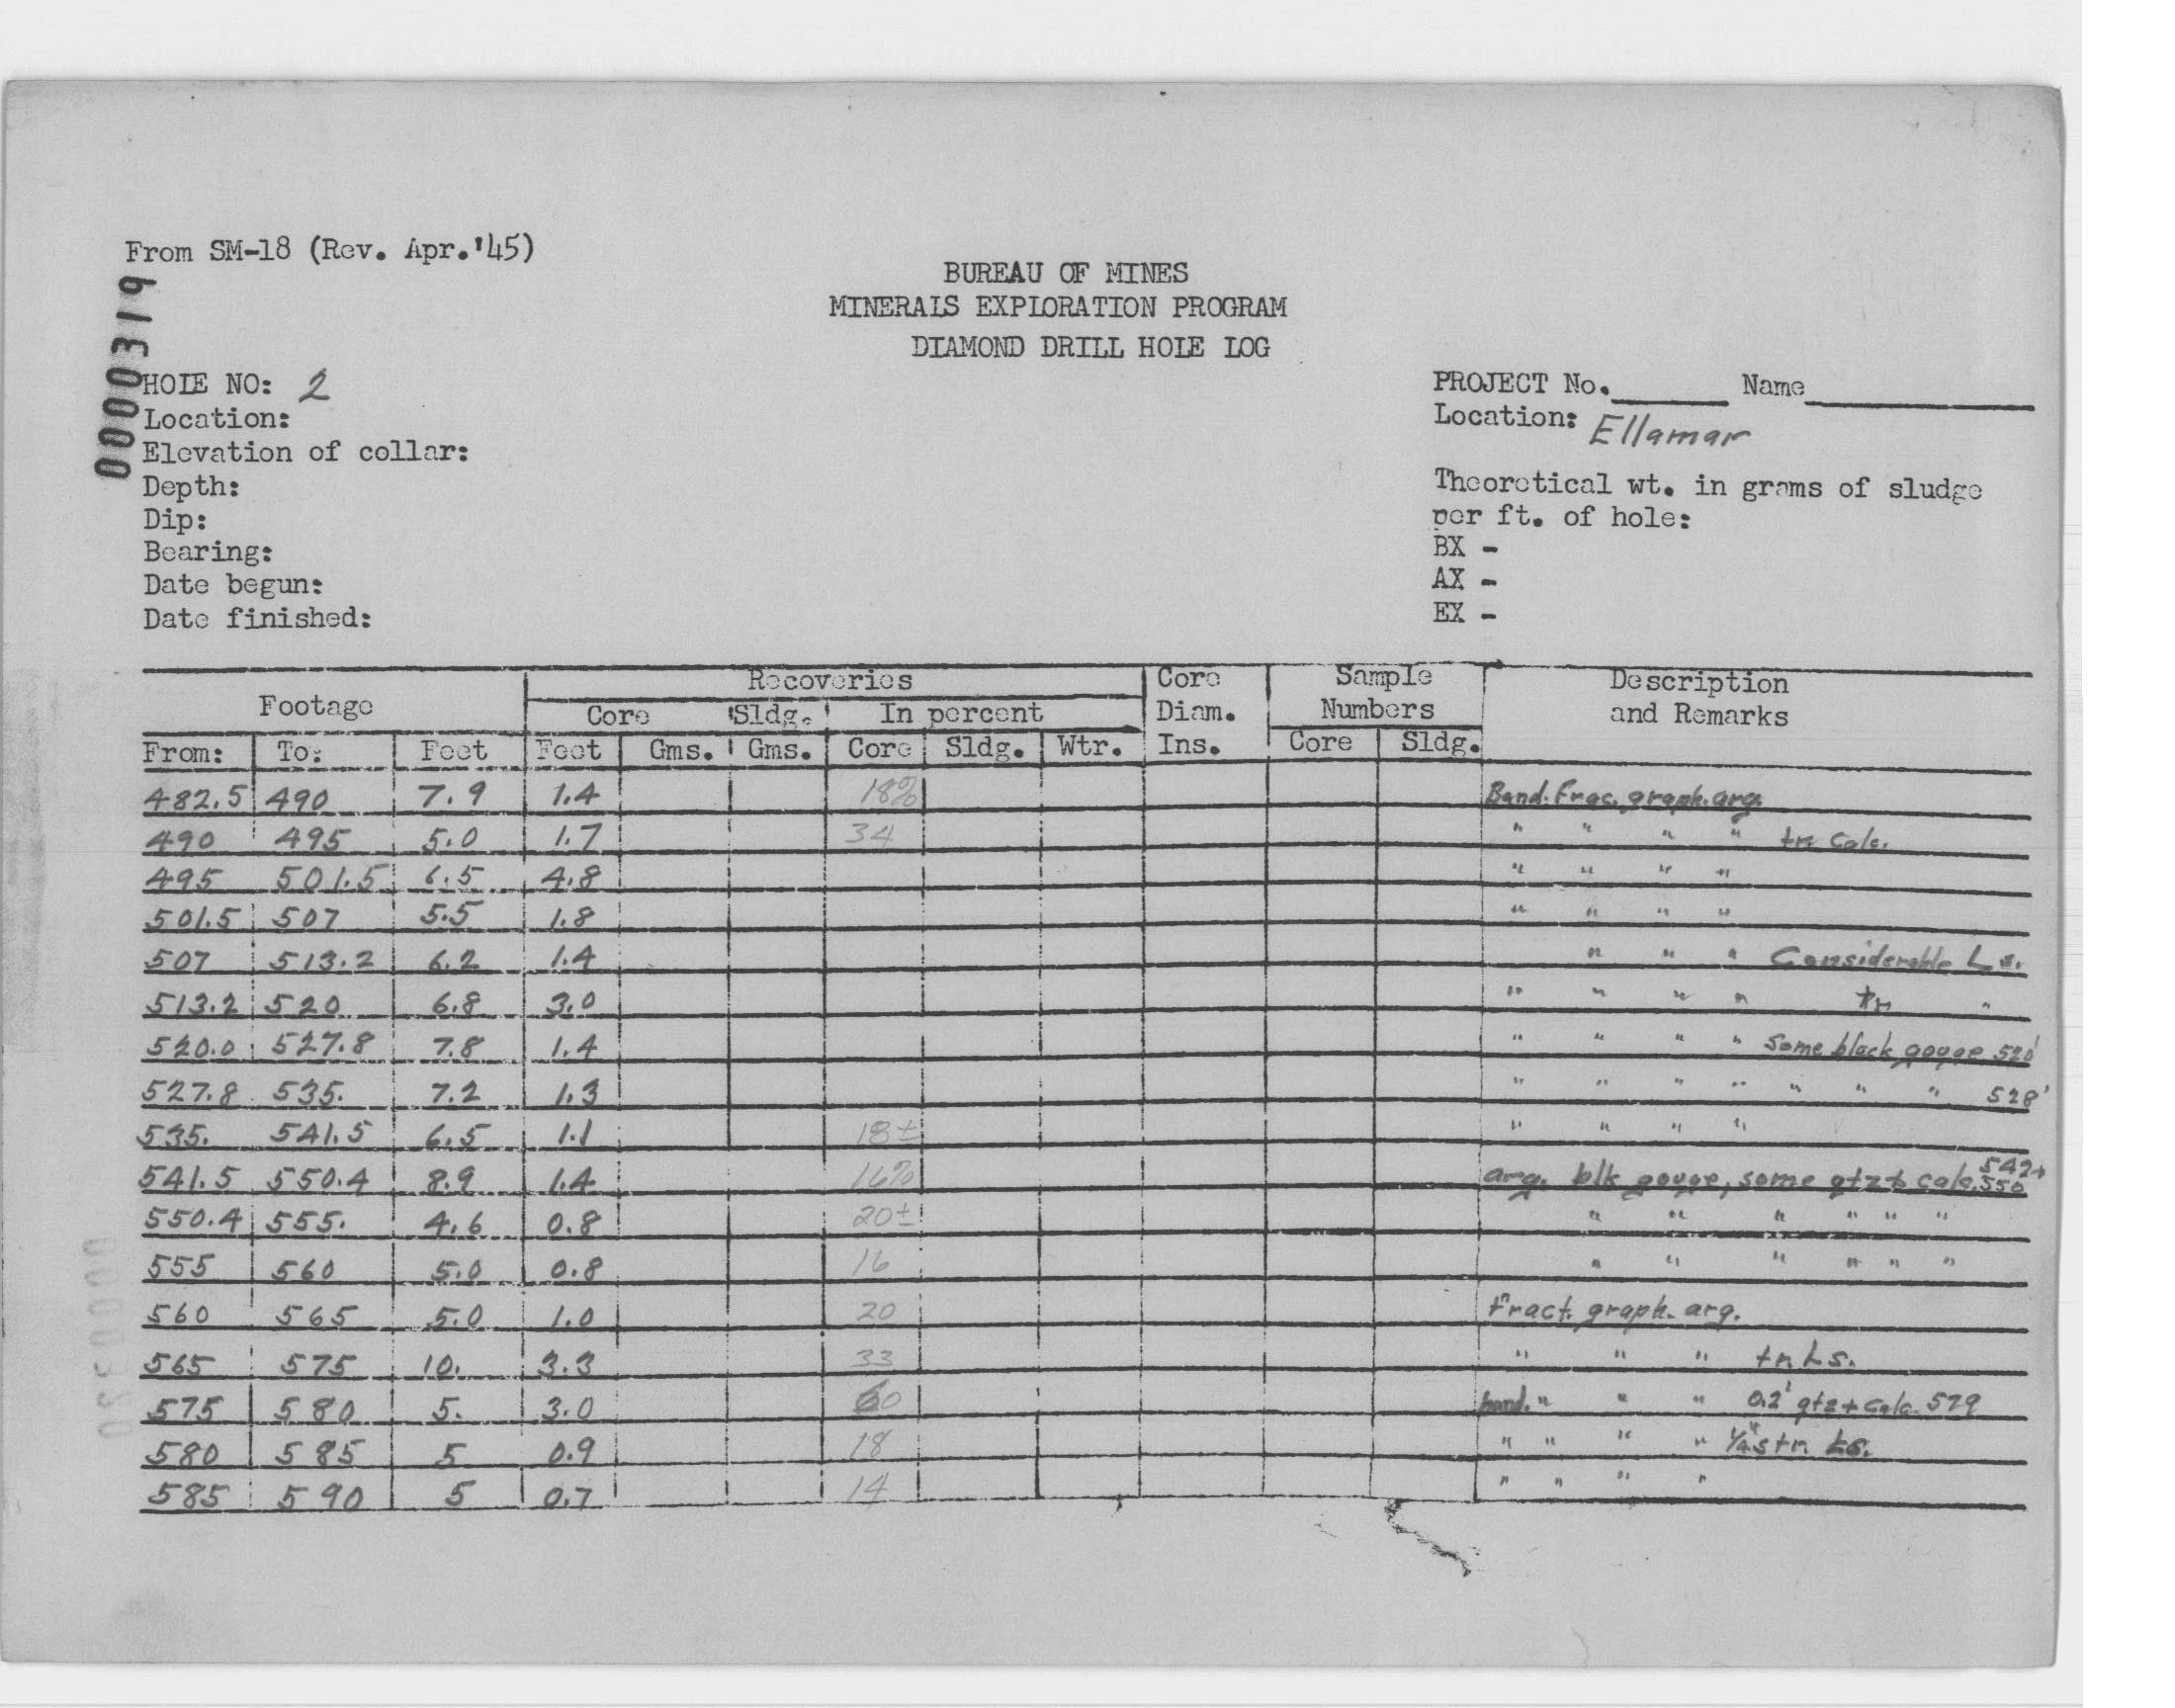 From SM-18 (Rev. Apr.'45)
0000319
BUREAU OF MINES
MINERALS EXPLORATION PROGRAM
DIAMOND DRILL HOLE LOG
HOLE NO: 2
Location:
Elevation of collar:
Depth:
Dip:
Bearing:
Date begun:
Date finished:
PROJECT No. Name
Location: Ellamar
Theoretical wt. in grams of sludge
per ft. of hole:
BX -
AX -
EX -
Footage Recoveries Core Diam. Ins. Sample Numbers Description and Remarks
Core Sldg. In percent
From: To: Feet Feet Gms. Gms. Core Sldg. Wtr. Core Sldg.
482.5 490 7.9 1.4 18% Band. Frac. graph. arg.
490 495 5.0 1.7 34 " " " " tr. Calc.
495 501.5 6.5 4.8 " " " "
501.5 507 5.5 1.8 " " " "
507 513.2 6.2 1.4 " " " Considerable Ls.
513.2 520 6.8 3.0 " " " " tr. "
520.0 527.8 7.8 1.4 " " " " Some black gouge 520'
527.8 535. 7.2 1.3 " " " " " " " 528'
535. 541.5 6.5 1.1 18± " " " "
541.5 550.4 8.9 1.4 16% arg. blk gouge, some qtz + calc. 542+ 550
550.4 555. 4.6 0.8 20± " " " " " "
555 560 5.0 0.8 16 " " " " " "
560 565 5.0 1.0 20 Fract. graph. arg.
565 575 10. 3.3 33 " " " tr. Ls.
575 580 5. 3.0 60 band. " " " 0.2' qtz + calc. 579
580 585 5 0.9 18 " " " " 1/4" str. Ls.
585 590 5 0.7 14 " " " "